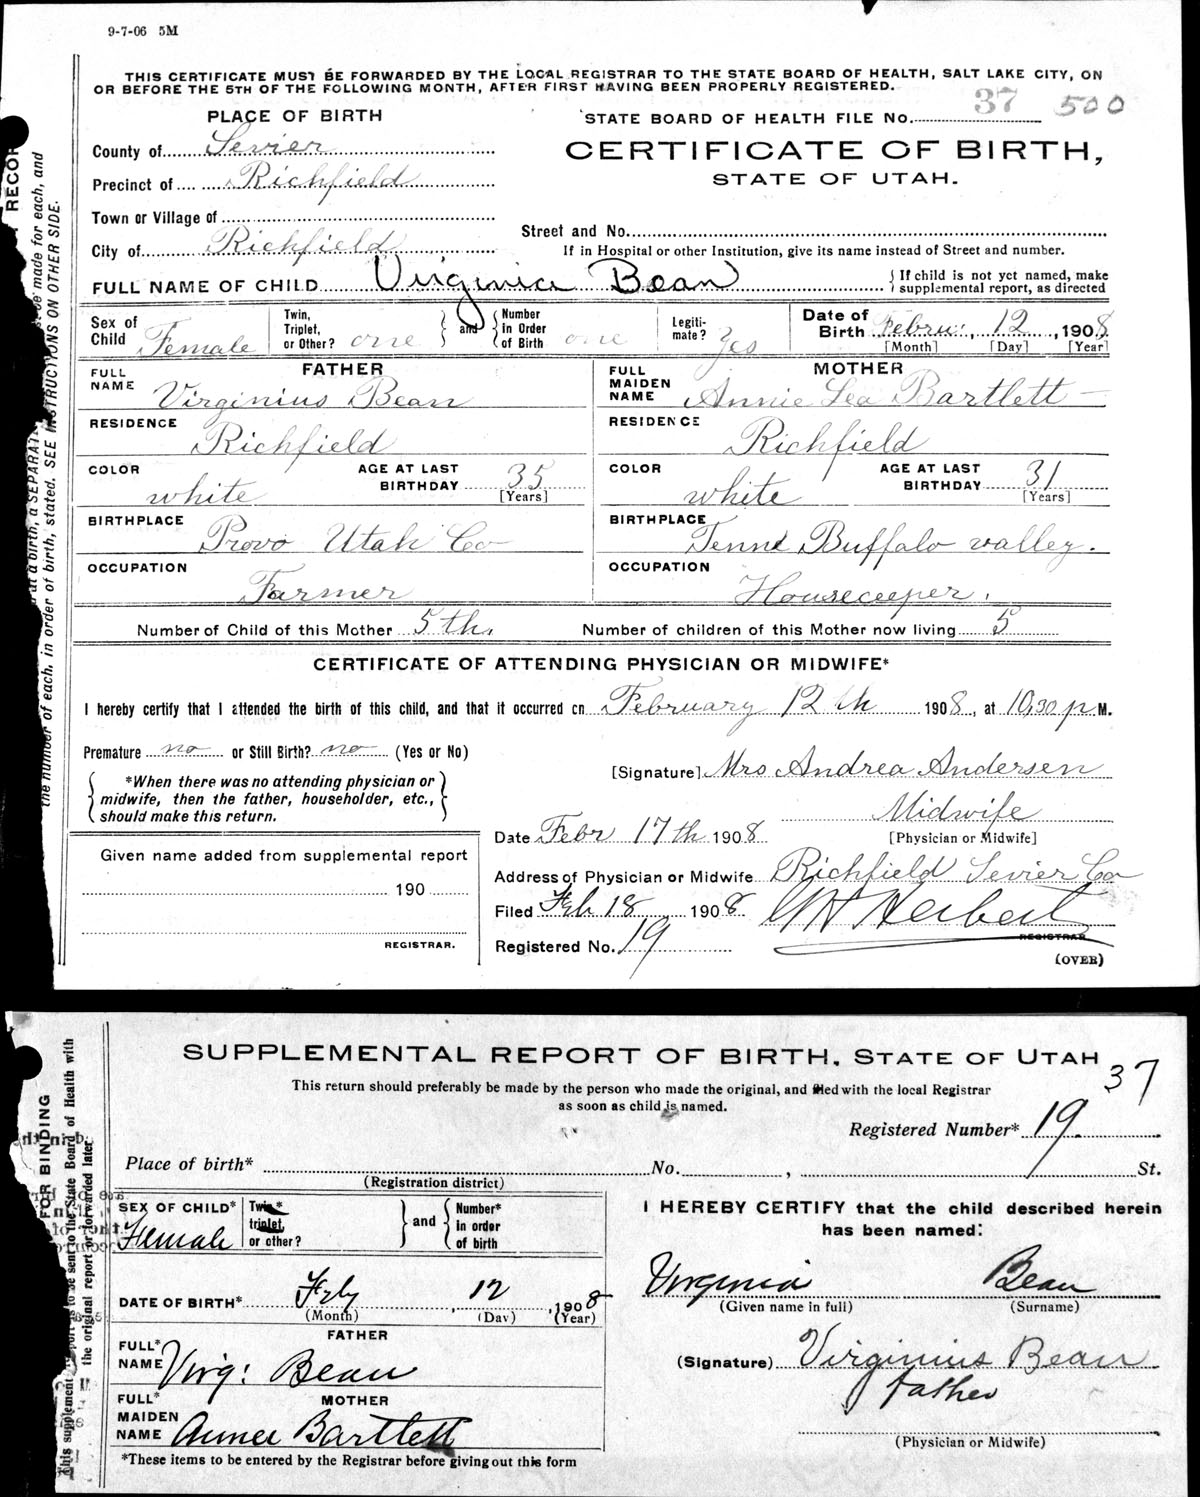 9-7-06 5M
THIS CERTIFICATE MUST BE FORWARDED BY THE LOCAL REGISTRAR TO THE STATE BOARD OF HEALTH, SALT LAKE CITY, ON
OR BEFORE THE 5TH OF THE FOLLOWING MONTH, AFTER FIRST HAVING BEEN PROPERLY REGISTERED.
PLACE OF BIRTH
STATE BOARD OF HEALTH FILE No. 37 500
County of Sevier
CERTIFICATE OF BIRTH,
STATE OF UTAH.
Precinct of Richfield
Town or Village of
Street and No.
City of Richfield
If in Hospital or other Institution, give its name instead of Street and number.
FULL NAME OF CHILD Virginia Bean
{If child is not yet named, make
supplemental report, as directed
Sex of Child Female
Twin, Triplet, or Other? one } and { Number in Order of Birth one
Legiti-mate? Yes
Date of Birth Febru: 12, 1908
[Month] [Day] [Year]
FATHER
FULL NAME Virginius Bean
RESIDENCE Richfield
COLOR white AGE AT LAST BIRTHDAY 35 [Years]
BIRTHPLACE Provo Utah Co
OCCUPATION Farmer
MOTHER
FULL MAIDEN NAME Annie Lea Bartlett
RESIDENCE Richfield
COLOR white AGE AT LAST BIRTHDAY 31 [Years]
BIRTHPLACE Tenne Buffalo valley.
OCCUPATION Houseceeper.
Number of Child of this Mother 5th. Number of children of this Mother now living 5
CERTIFICATE OF ATTENDING PHYSICIAN OR MIDWIFE*
I hereby certify that I attended the birth of this child, and that it occurred on February 12th 1908, at 10,30 p. M.
Premature no or Still Birth? no (Yes or No)
*When there was no attending physician or
midwife, then the father, householder, etc.,
should make this return.
[Signature] Mrs Andrea Andersen
Midwife
[Physician or Midwife]
Date Febr 17th 1908
Given name added from supplemental report
190
REGISTRAR.
Address of Physician or Midwife Richfield Sevier Co
Filed Feb 18 1908 G H Herbert
REGISTRAR
Registered No. 19
(OVER)
made for each, and
the number of each, in order of birth, stated. SEE INSTRUCTIONS ON OTHER SIDE.
SUPPLEMENTAL REPORT OF BIRTH, STATE OF UTAH
37
This return should preferably be made by the person who made the original, and filed with the local Registrar
as soon as child is named.
Registered Number* 19
Place of birth* No. , St.
(Registration district)
SEX OF CHILD* Female
Twin,* triplet, or other? } and { Number* in order of birth
DATE OF BIRTH* Feby 12, 1908
(Month) (Day) (Year)
FATHER
FULL* NAME Virg: Bean
MOTHER
FULL* MAIDEN NAME Annee Bartlett
*These items to be entered by the Registrar before giving out this form
I HEREBY CERTIFY that the child described herein
has been named:
Virginia Bean
(Given name in full) (Surname)
(Signature) Virginius Bean
father
(Physician or Midwife)
FOR BINDING
the original report or forwarded later.